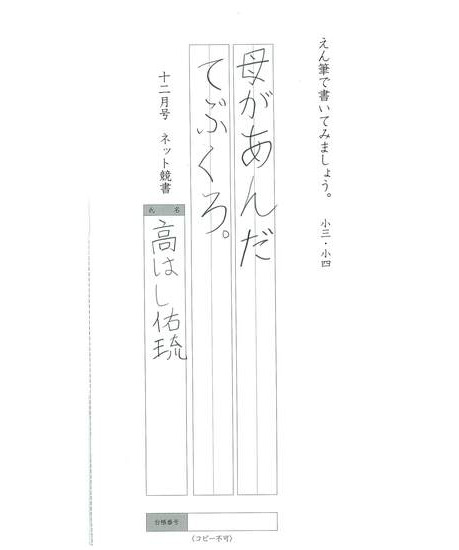 えん筆で書いてみましょう。 小三・小四
母があんだ
てぶくろ。
十二月号 ネット競書
氏名
高はし佑琉
台帳番号
〈コピー不可〉